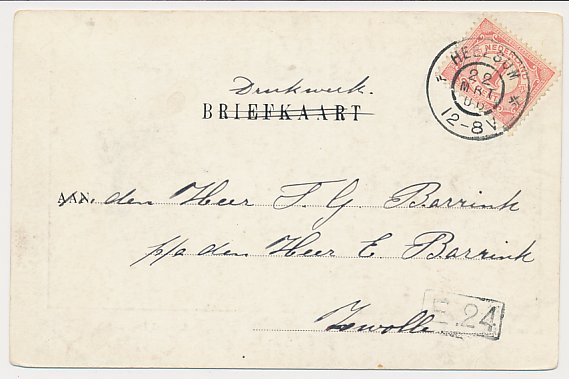 NEDERLAND
HEELSUM
22
MRT
06
12-8V
Drukwerk.
BRIEFKAART
AAN den Heer F. G. Barrink
p/a den Heer E. Barrink
Zwolle
E.24